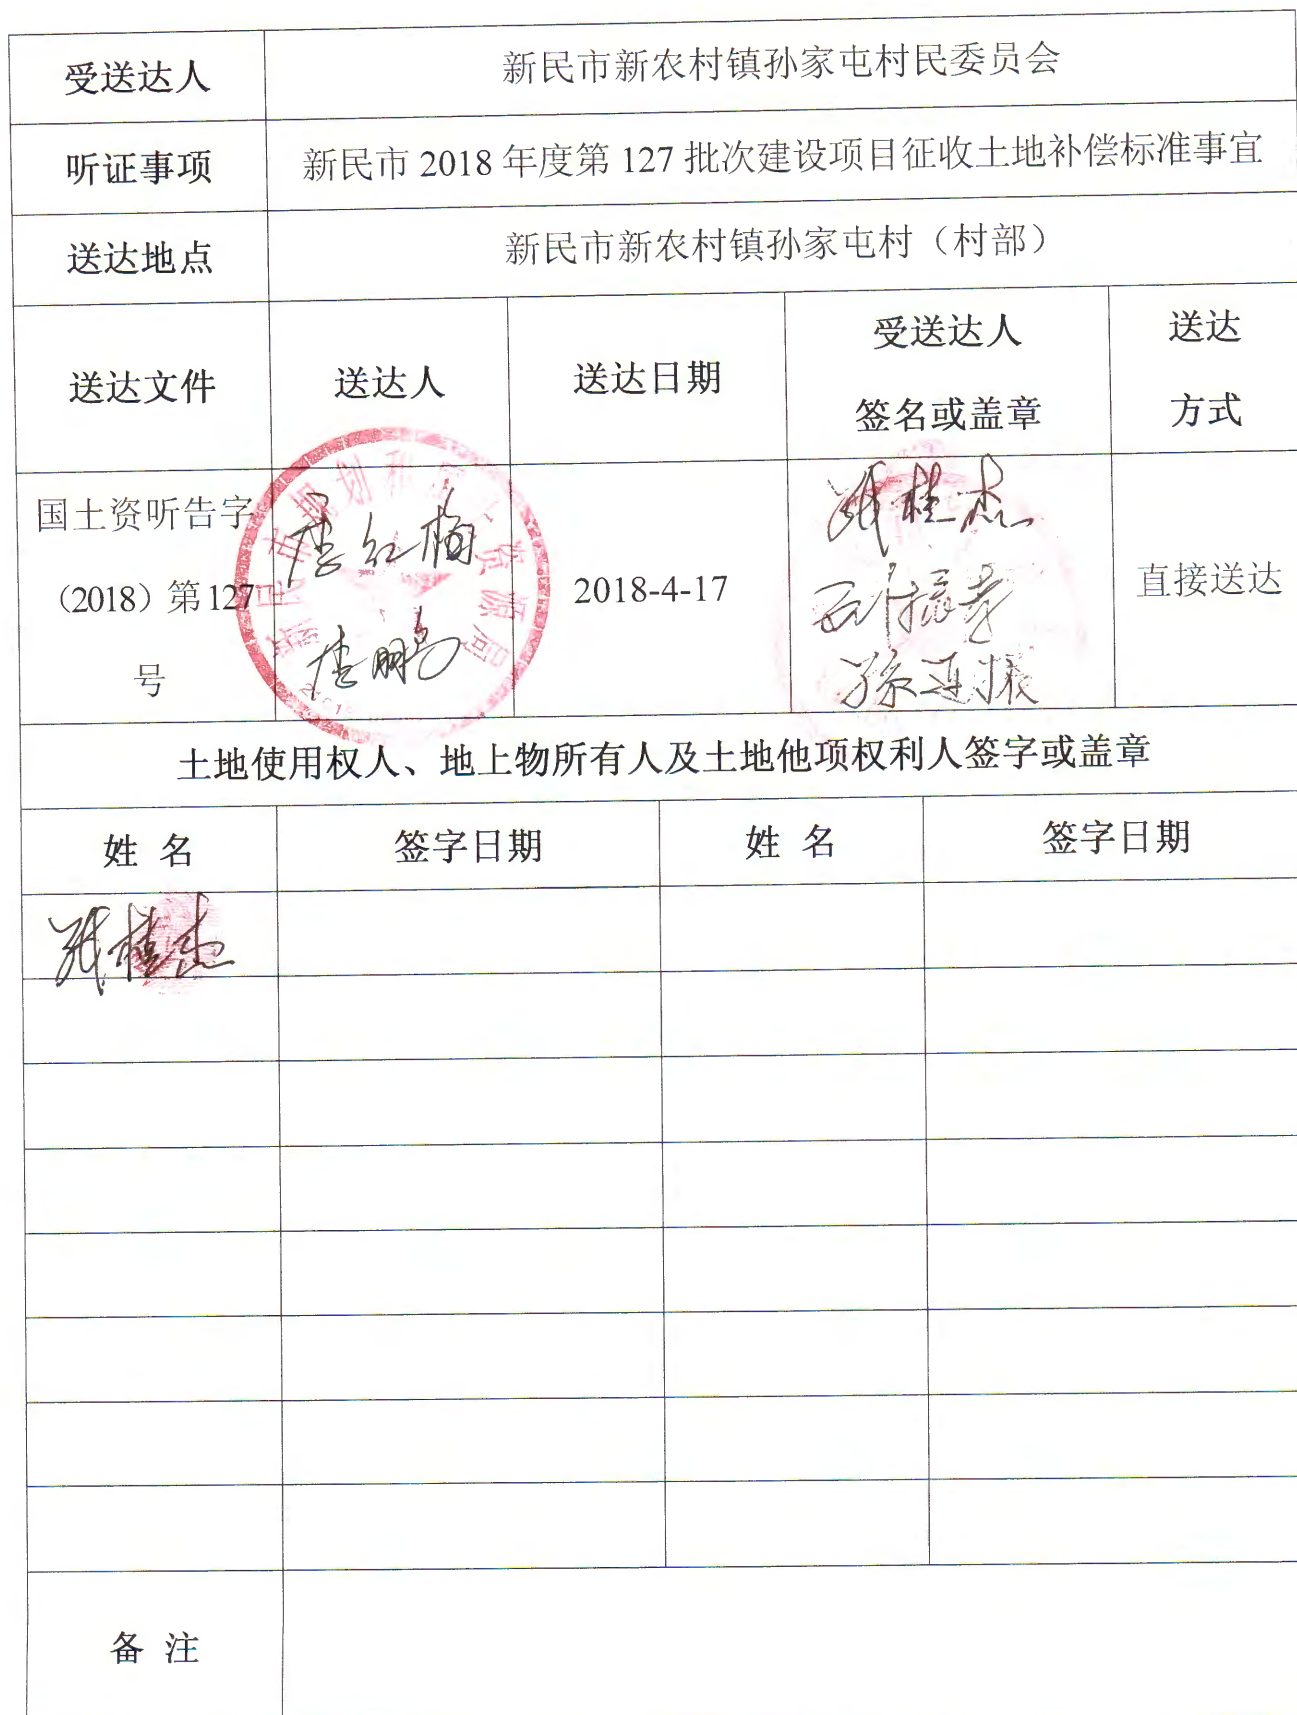 受送达人 新民市新农村镇孙家屯村民委员会
听证事项 新民市 2018 年度第 127 批次建设项目征收土地补偿标准事宜
送达地点 新民市新农村镇孙家屯村（村部）
送达文件 送达人 送达日期 受送达人 签名或盖章 送达 方式
国土资听告字
（2018）第 127
号
李红梅
李鹏
2018-4-17
桂杰
直接送达
土地使用权人、地上物所有人及土地他项权利人签字或盖章
姓 名 签字日期 姓 名 签字日期
桂杰
备 注